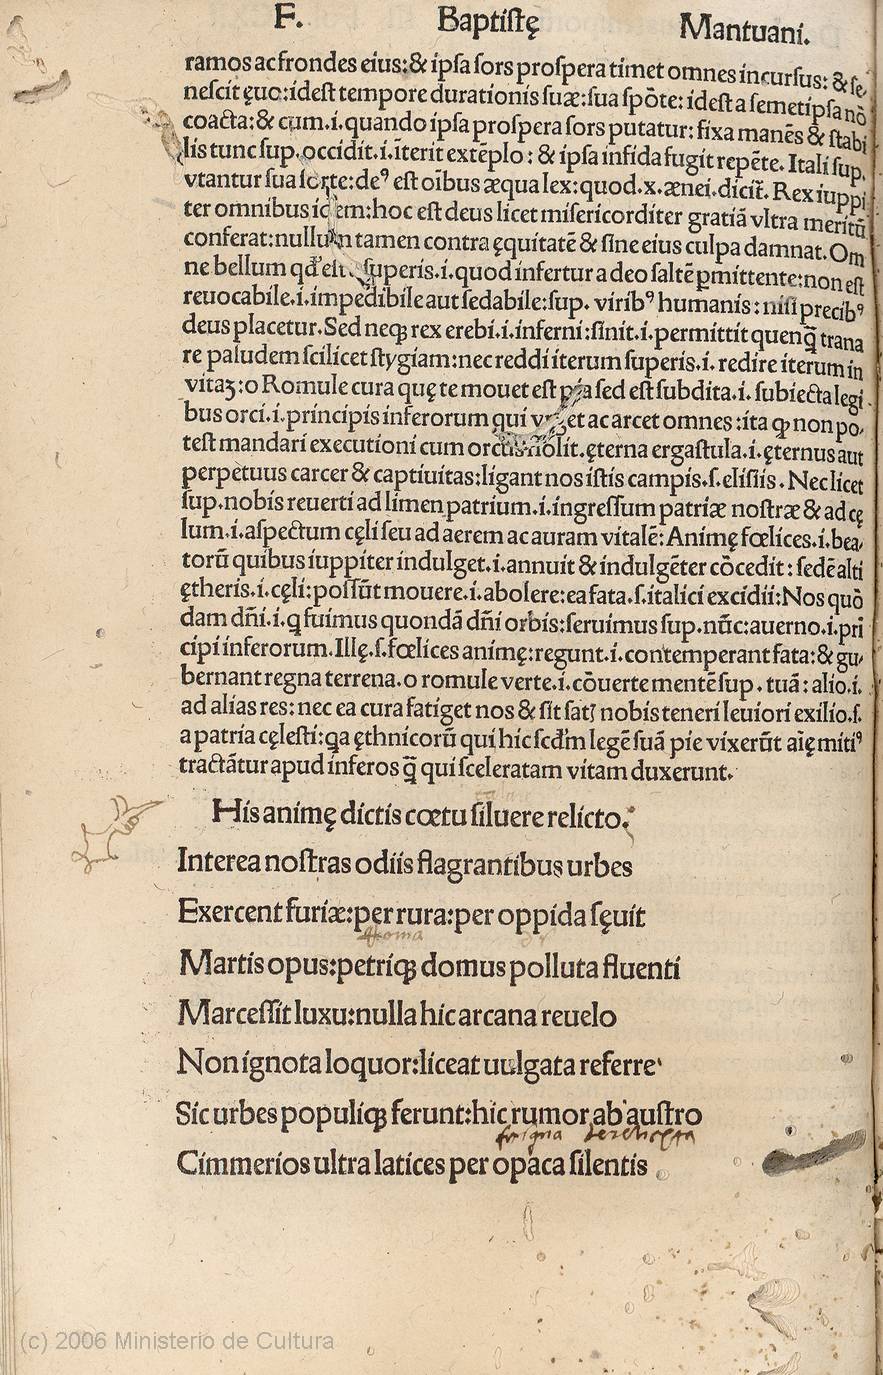 F. Baptiſtę Mantuani.
ramos ac frondes eius:& ipſa ſors proſpera timet omnes incurſus: & ſe
neſcit ęuo:ideſt tempore durationis ſuæ:ſua ſpōte: ideſt a ſemetipſa nō
coacta:& cum.i.quando ipſa proſpera ſors putatur: fixa manēs & ſtabi
lis tunc ſup.occidit.i.īterit extēplo: & ipſa infida fugit repēte. Itali ſup.
vtantur ſua ſorte:deꝰ eſt oībus æqua lex:quod.x.ænei.dicit̄. Rex iuppi
ter omnibus idem:hoc eſt deus licet miſericorditer gratiā vltra meritū
conferat:nullum tamen contra ęquitatē & ſine eius culpa damnat. Om
ne bellum qđ eſt ſuperis.i.quod infertur a deo ſaltē pmittente:non eſt
reuocabile.i.impedibile aut ſedabile:ſup. viribꝰ humanis: niſi precibꝰ
deus placetur. Sed neqȝ rex erebi.i.inferni:ſinit.i.permittit quenq̄ trana
re paludem ſcilicet ſtygiam:nec reddi iterum ſuperis.i. redire iterum in
vitaȝ:o Romule cura quę te mouet eſt pia ſed eſt ſubdita.i. ſubiecta legi
bus orci.i.principis inferorum qui vrget ac arcet omnes :ita ꝙ non po,
teſt mandari executioni cum orcus nolit.ęterna ergaſtula.i.ęternus aut
perpetuus carcer & captiuitas:ligant nos iſtis campis.ſ.eliſiis. Nec licet
ſup.nobis reuerti ad limen patrium.i.ingreſſum patriæ noſtræ & ad cę
lum.i.aſpectum cęli ſeu ad aerem ac auram vitalē: Animę fœlices.i.bea,
torū quibus iuppiter indulget.i.annuit & indulgēter cōcedit: ſedē alti
ętheris.i.cęli:poſſūt mouere.i.abolere:ea fata.ſ.italici excidii:Nos quō
dam dn̄i.i.q fuimus quondā dn̄i orbis:ſeruimus ſup.nūc:auerno.i.pri
cipi inferorum.Illę.ſ.fœlices animę:regunt.i.contemperant fata:& gu,
bernant regna terrena.o romule verte.i.cōuerte mentē ſup. tuā: alio.i.
ad alias res: nec ea cura fatiget nos & ſit ſatꝭ nobis teneri leuiori exilio.ſ.
a patria cęleſti:qa ęthnicorū qui hic ſcd̄m legē ſuā pie vixerūt aīę mitiꝰ
tractātur apud inferos q̄ qui ſceleratam vitam duxerunt.
His animę dictis cœtu ſiluere relicto.
Interea noſtras odiis flagrantibus urbes
Exercent furiæ:per rura:per oppida ſęuit
Roma
Martis opus:petriqȝ domus polluta fluenti
Marceſſit luxu:nulla hic arcana reuelo
Non ignota loquor:liceat uulgata referre
Sic urbes populiqȝ ferunt:hic rumor ab auſtro
Cimmerios ultra latices per opaca ſilentis
(c) 2006 Ministerio de Cultura